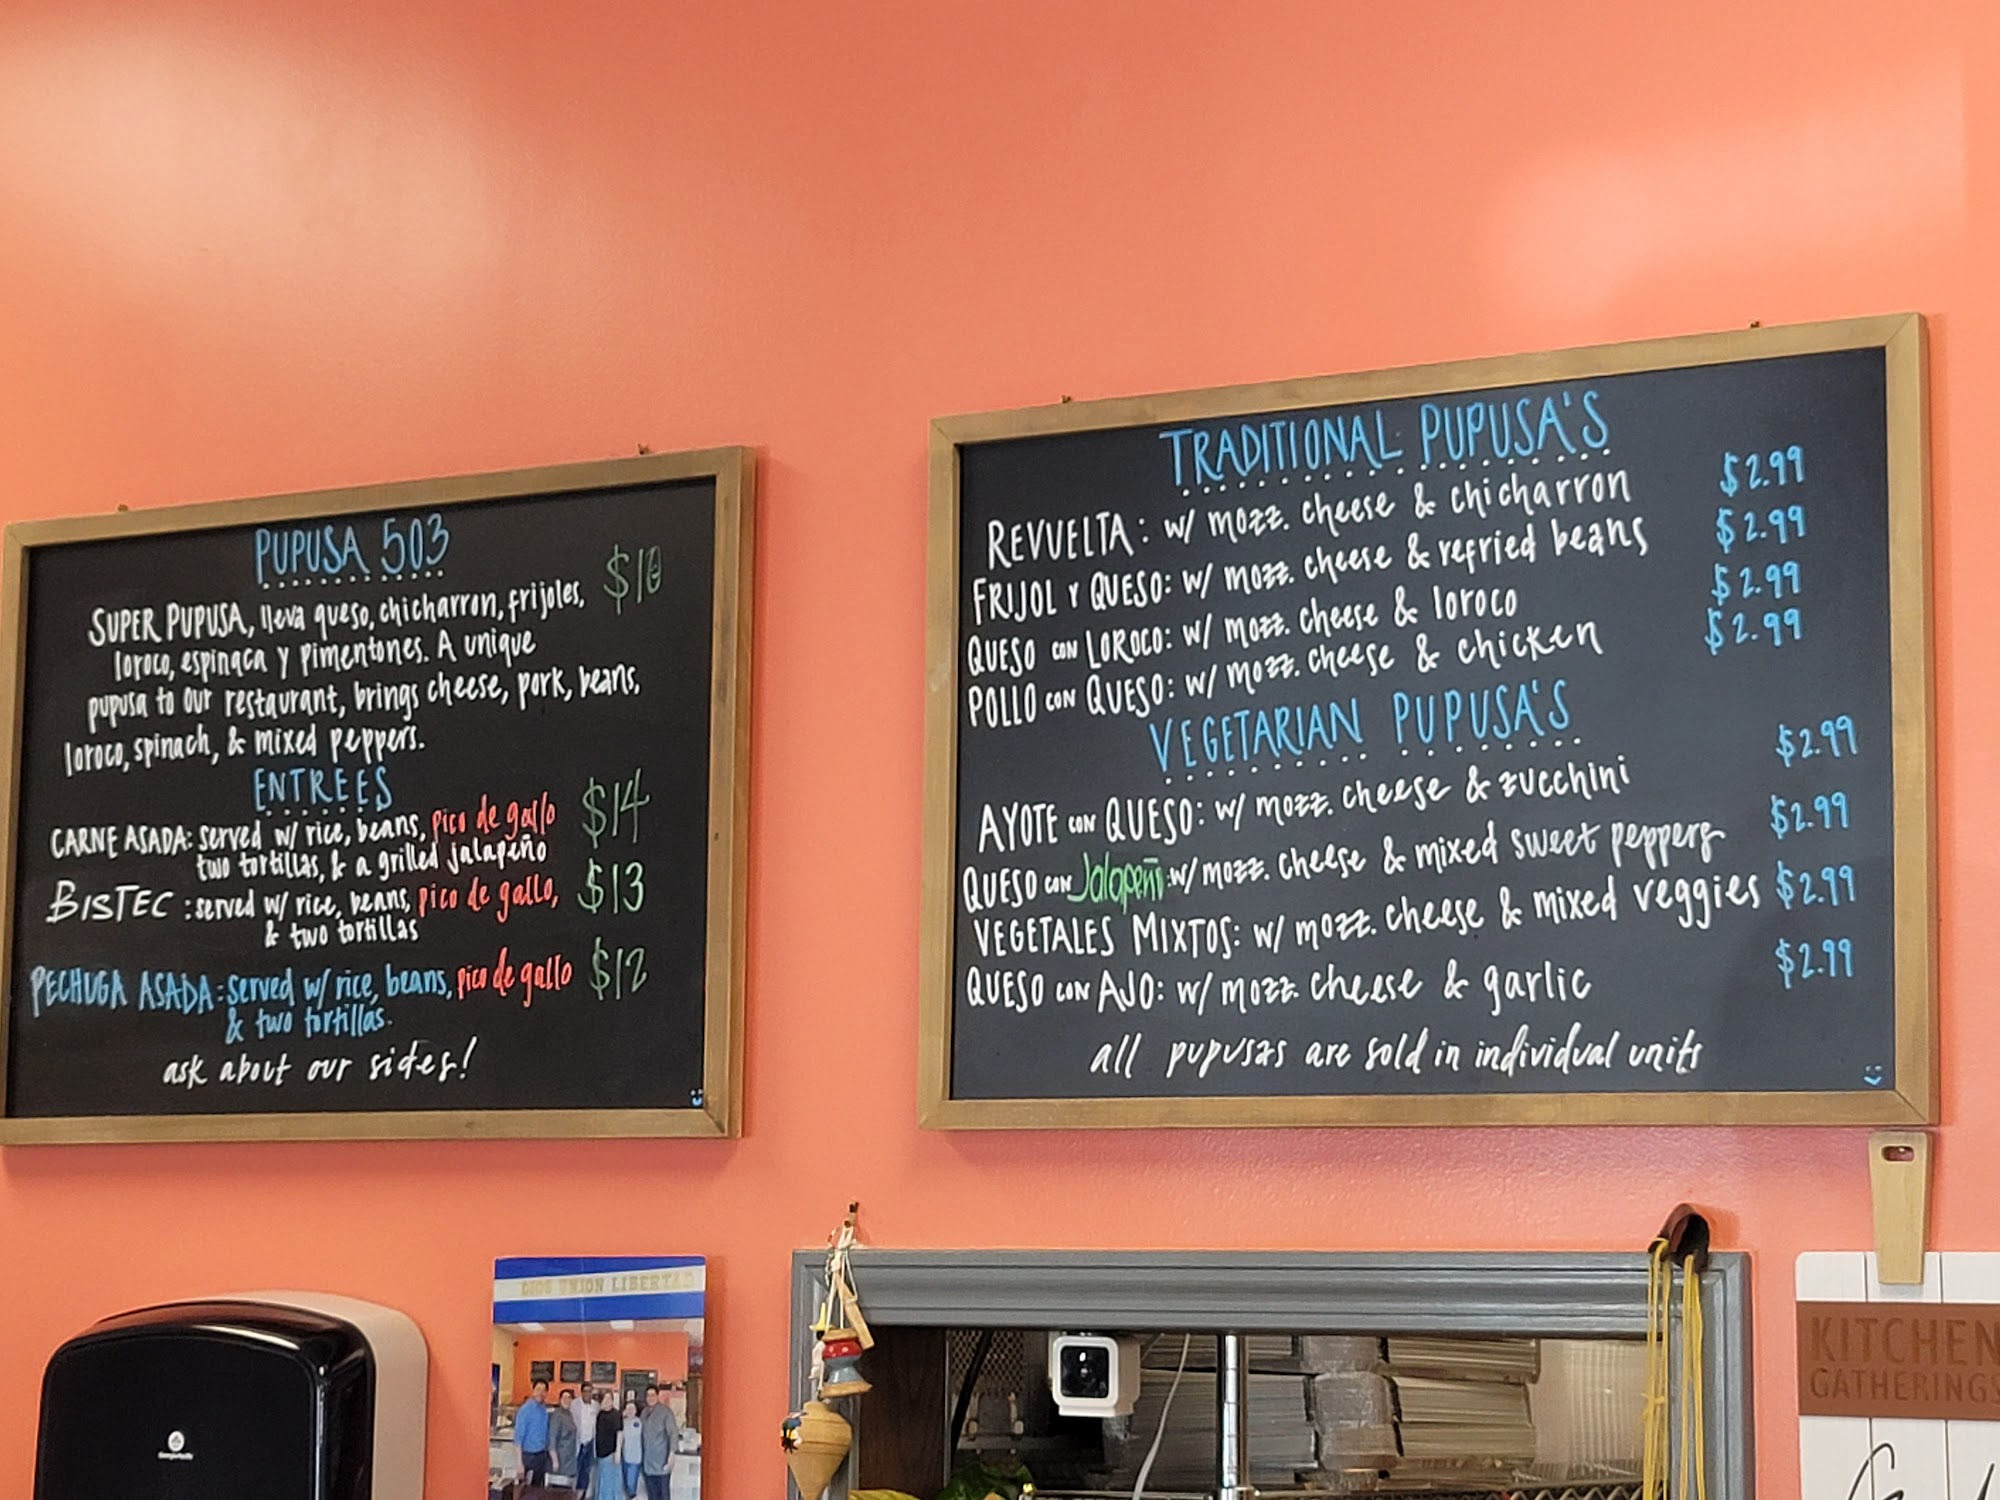 PUPUSA 503
SUPER PUPUSA, lleva queso, chicharron, frijoles, $10
loroco, espinaca y pimentones. A unique
pupusa to our restaurant, brings cheese, pork, beans,
loroco, spinach, & mixed peppers.
ENTREES
CARNE ASADA: served w/ rice, beans, pico de gallo $14
two tortillas, & a grilled jalapeño
BISTEC: served w/ rice, beans, pico de gallo, $13
& two tortillas
PECHUGA ASADA: served w/ rice, beans, pico de gallo $12
& two tortillas.
ask about our sides!
TRADITIONAL PUPUSA'S
REVUELTA: w/ mozz. cheese & chicharron $2.99
FRIJOL Y QUESO: w/ mozz. cheese & refried beans $2.99
QUESO CON LOROCO: w/ mozz. cheese & loroco $2.99
POLLO CON QUESO: w/ mozz. cheese & chicken $2.99
VEGETARIAN PUPUSA'S
AYOTE CON QUESO: w/ mozz. cheese & zucchini $2.99
QUESO CON Jalapeñ: w/ mozz. cheese & mixed sweet peppers $2.99
VEGETALES MIXTOS: w/ mozz. cheese & mixed veggies $2.99
QUESO CON AJO: w/ mozz. cheese & garlic $2.99
all pupusas are sold in individual units
DIOS UNION LIBERTAD
KITCHEN
GATHERINGS